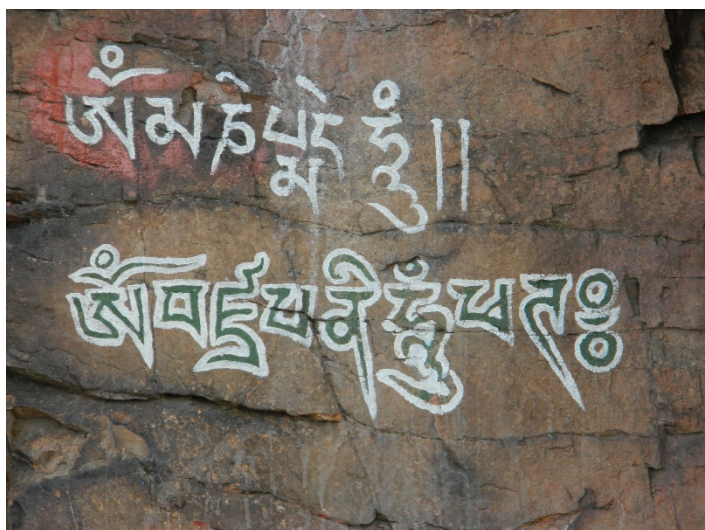 ཨོཾམཎིཔདྨེཧཱུྃ།།
ཨོཾབཛྲཔཎིཧཱུྃཕཊཿ